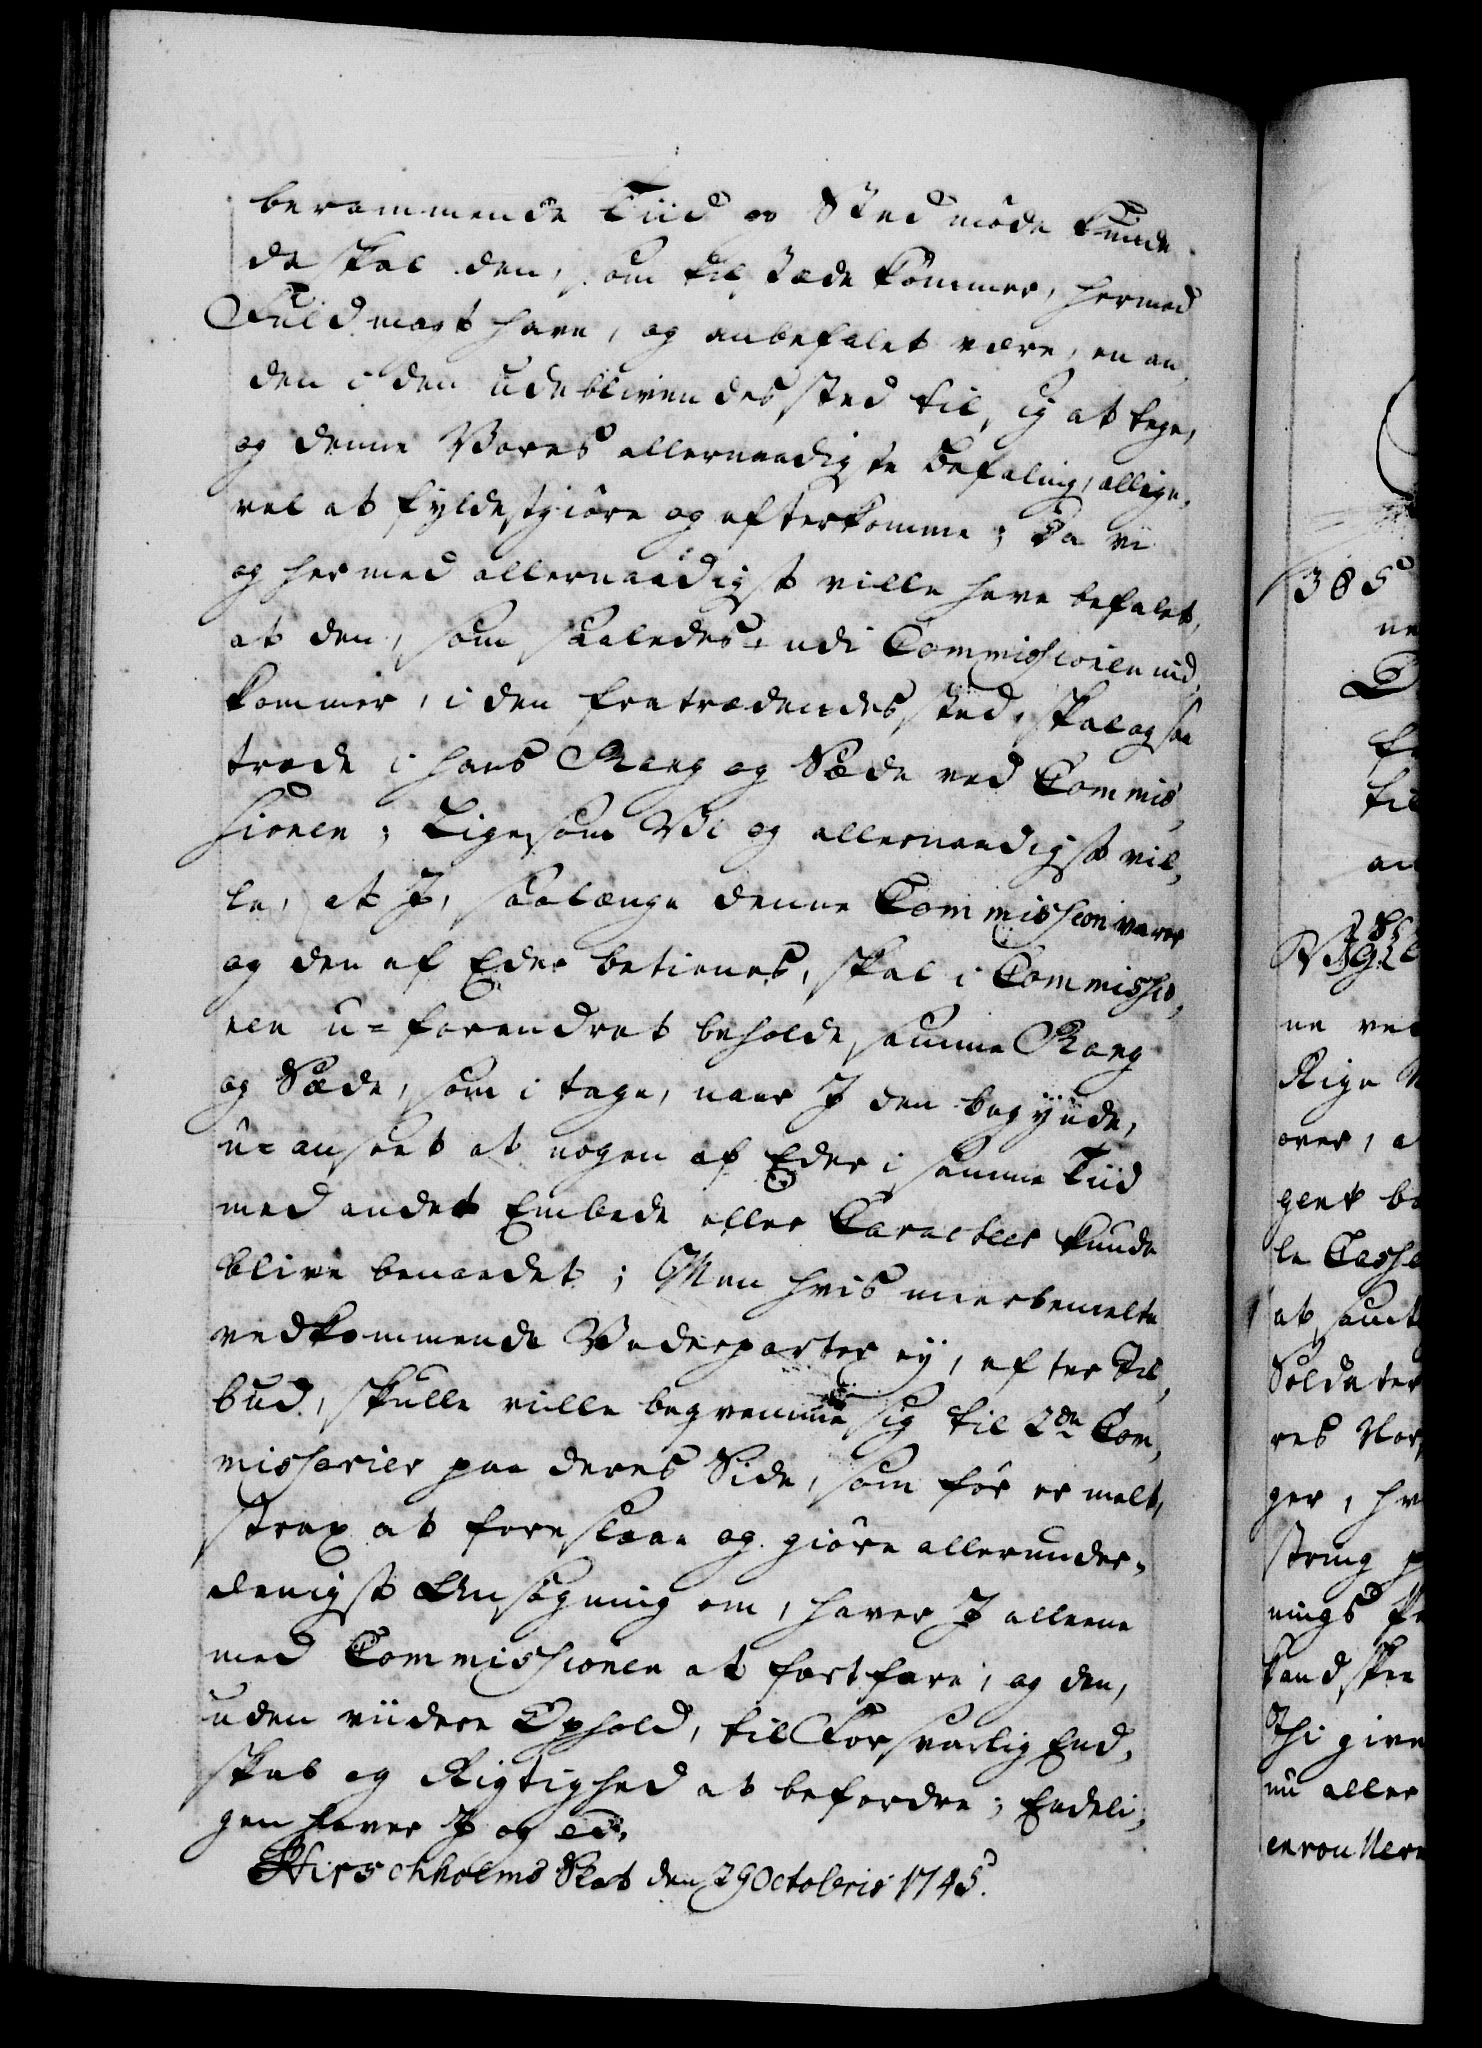 berammende Tiid og Sted møde kunde
da skal den, som tilstæde kommer, hermed
Fuldmagt have, og anbefalet være, en an¬
den i den udeblivendes sted til sig at tage,
og denne Vores allernaadigste Befaling, allige¬
vel at fyldestgiøre og efterkomme; Da vi
og hermed allernaadigst ville have befalet,
at den, som saaledes udi Commissionen ind¬
kommer, i den fratrædendes sted, skal og saa
træde i hans Rang og Sæde ved Commis¬
sionen; Ligesom Vi og allernaadigst vil¬
le, at I, saalænge denne Commission varer
og den af Eder betienes, skal i Commissio¬
nen u-forandret beholde samme Rang
og Sæde, som i tage, naar I den begynde,
u-anseet at nogen af Eder i samme Tiid
med andet Embede eller Caracteer kunde
blive benaadet; Men hvis meerbemelte
vedkommende Vederparter ey, efter Til¬
bud, skulle ville beqvemme sig til 2de Com¬
missarier paa deres Side, som før er melt,
strax at foreslaae og giøre allerunder¬
danigst Ansøgning om, haver I alleene
med Commissionen at fortfare, og den,
uden viidere Ophold, til forsvarlig End¬
skab og Rigtighed at befordre; Endeli¬
gen haver I og etc.
Hirschholms Slot den 29 Octobris 1745.
385